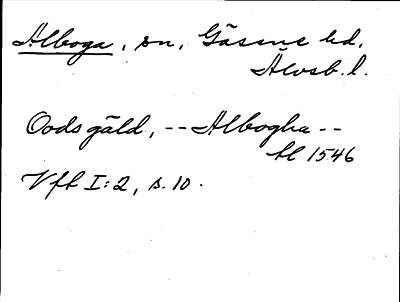 Alboga, sn, Gäsene hd,
Älvsb. l.
Oods gäld, -- Albogha --
hl 1546
Vft I:2, s. 10.